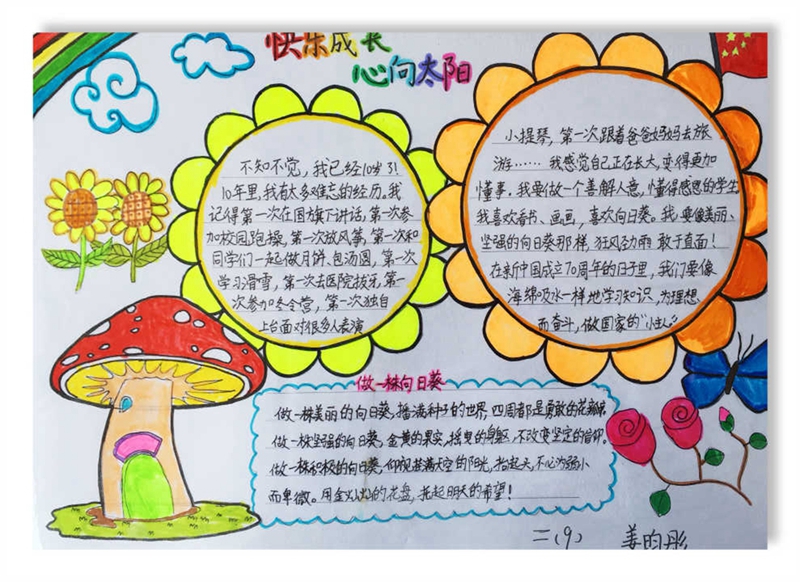 快乐成长
心向太阳
不知不觉，我已经10岁了！
10年里，我有太多难忘的经历。我
记得第一次在国旗下讲话，第一次参
加校园跑操，第一次放风筝，第一次和
同学们一起做月饼、包汤圆，第一次
学习滑雪，第一次去医院拔牙，第一
次参加冬令营，第一次独自
上台面对很多人表演
小提琴，第一次跟着爸爸妈妈去旅
游……我感觉自己正在长大，变得更加
懂事。我要做一个善解人意，懂得感恩的学生。
我喜欢看书、画画，喜欢向日葵。我要像美丽、
坚强的向日葵那样，狂风劲雨敢于直面！
在新中国成立70周年的日子里，我们要像
海绵吸水一样地学习知识，为理想
而奋斗，做国家的“小主人”
做一株向日葵
做一株美丽的向日葵，播满种子的世界，四周都是勇敢的花瓣
做一株坚强的向日葵，金黄的果实，摇曳的身躯，不改变坚定的信仰。
做一株积极的向日葵，仰视满天空的阳光，抬起头，不必为弱小
而卑微。用金灿灿的花盘，托起明天的希望！
二（9） 姜昀彤